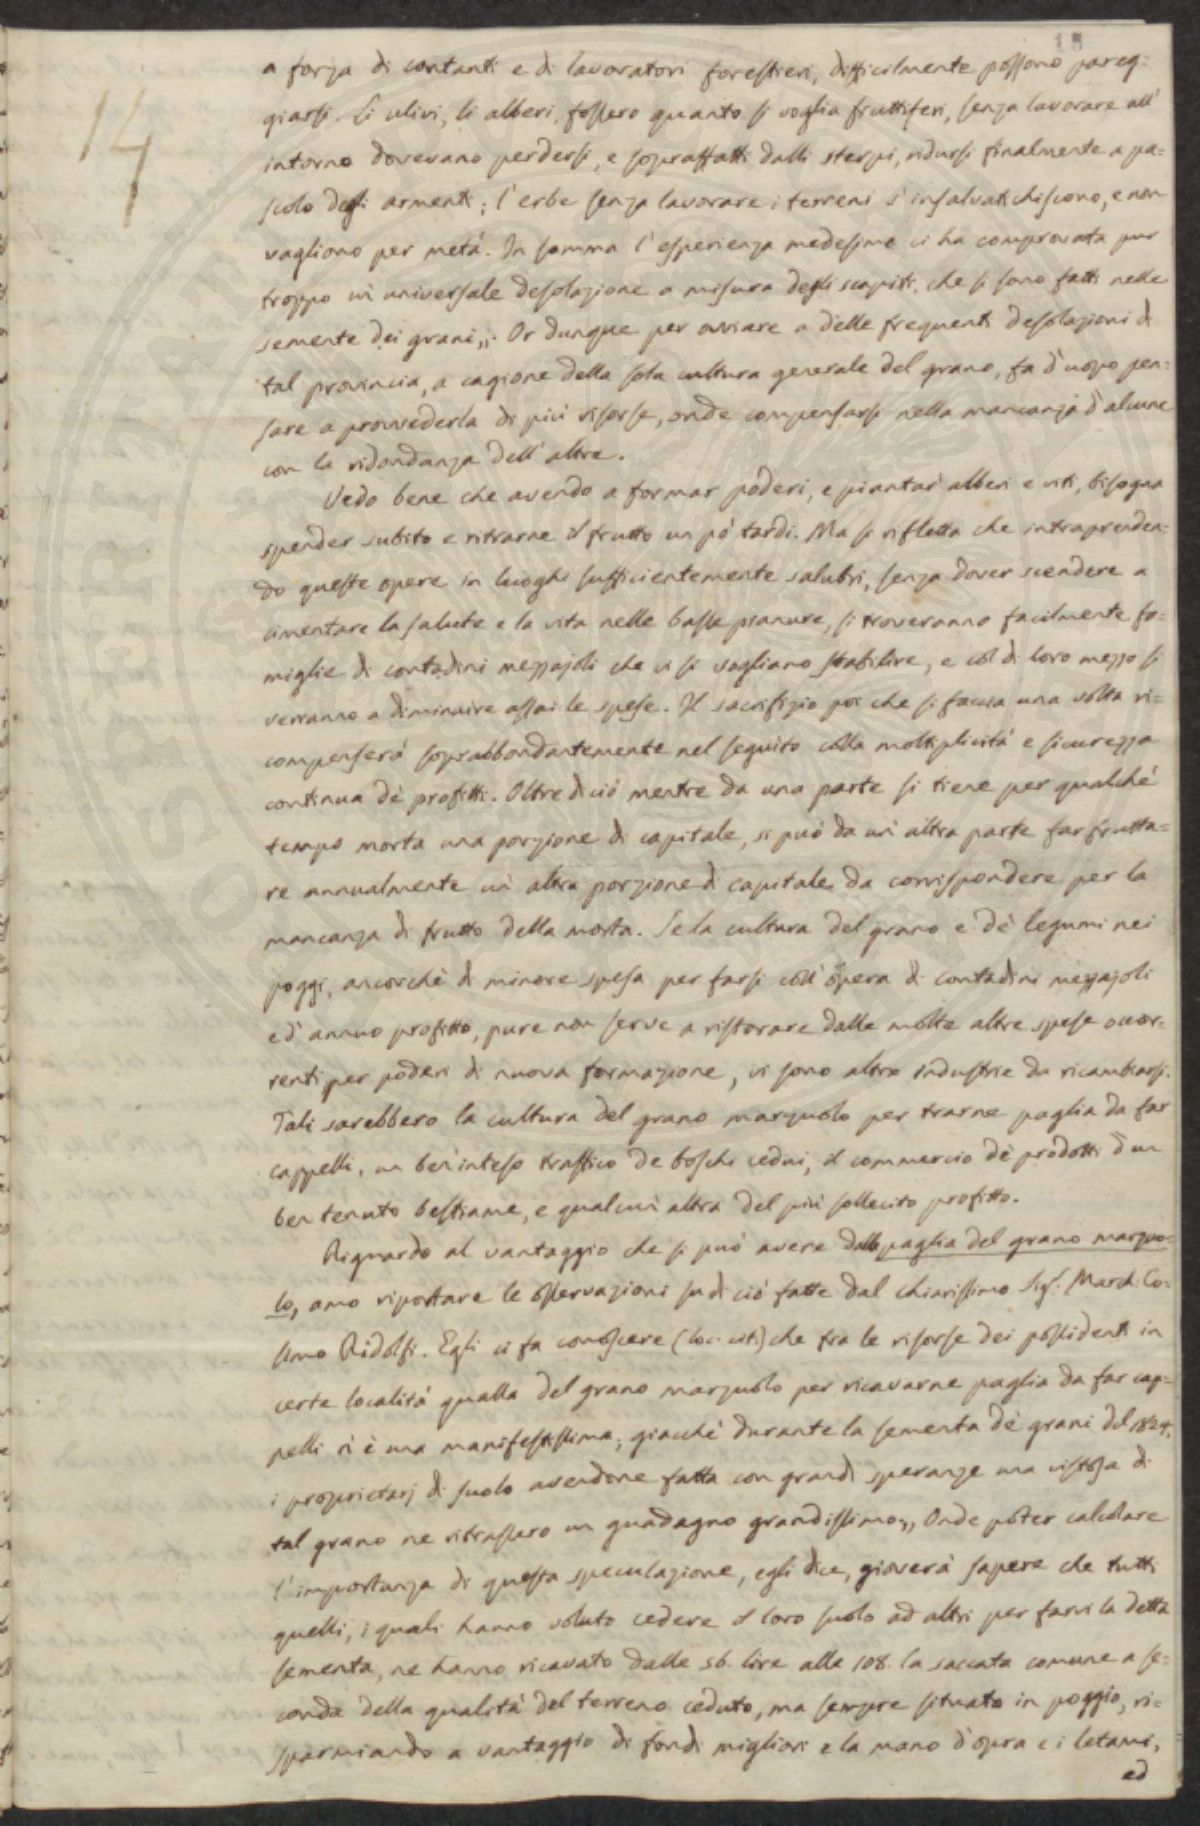 15
14
a forza di contanti e di lavoratori forestieri, difficilmente possono pareg:
giarsi. Li ulivi, li alberi, fossero quanto si voglia fruttiferi, senza lavorare all'
intorno dovevano perdersi, e sopraffatti dalli sterpi, ridursi finalmente a pa=
scolo degli armenti; l'erbe senza lavorare i terreni s'insalvatichiscono, e non
vagliono per metà. In somma l'esperienza medesima ci ha comprovata pur
troppo un' universale desolazione a misura degli scapiti, che si sono fatti nelle
semente dei grani„. Or dunque per ovviare a delle frequenti desolazioni di
tal provincia, a cagione della sola cultura generale del grano, fa d'uopo pen=
sare a provvederla di più risorse, onde compensarsi nella mancanza d'alcune
con la ridondanza dell'altre.
Vedo bene che avendo a formar poderi, e piantar alberi e viti, bisogna
spender subito e ritrarne il frutto un pò tardi. Ma si rifletta che intraprenden=
do queste opere in luoghi sufficientemente salubri, senza dover scendere a
cimentare la salute e la vita nelle basse pianure, si troveranno facilmente fa=
miglie di contadini mezzajoli che vi si vogliano stabilire, e col di loro mezzo si
verranno a diminuire assai le spese. Il sacrifizio poi che si faccia una volta ri=
compenserà soprabbondantemente nel seguito colla moltiplicità e sicurezza
continua dè profitti. Oltre di ciò mentre da una parte si tiene per qualchè
tempo morta una porzione di capitale, si può da un' altra parte far frutta=
re annualmente un' altra porzione di capitale da corrispondere per la
mancanza di frutto della morta. Se la cultura del grano e dè legumi nei
poggi, ancorchè di minore spesa per farsi coll'opera di contadini mezzajoli
ed' annuo profitto, pure non serve a ristorare dalle molte altre spese occor=
renti per poderi di nuova formazione, vi sono altre industrie da ricambiarsi.
Tali sarebbero la cultura del grano marzuolo per trarne paglia da far
cappelli, un ben'inteso traffico de boschi cedui, il commercio dè prodotti d'un
ben tenuto bestiame, e qualcun' altra del più sollecito profitto.
Riguardo al vantaggio che si può avere dalla paglia del grano marzuo=
lo, amo riportare le osservazioni su di ciò fatte dal chiarissimo Sig.r March. Co=
simo Ridolfi. Egli ci fa conoscere (loc. cit.) che fra le risorse dei possidenti in
certe località quella del grano marzuolo per ricavarne paglia da far cap=
pelli vi è una manifestissima; giacchè durante la sementa dè grani del 1824.
i proprietarj di suolo avendone fatta con grandi speranze una vistosa di
tal grano ne ritrassero un guadagno grandissimo. „ Onde poter calcolare
l'importanza di questa speculazione, egli dice, gioverà sapere che tutti
quelli, i quali hanno voluto cedere il loro suolo ad altri per farvi la detta
sementa, ne hanno ricavato dalle 56. lire alle 108. la saccata comune a se=
conda della qualità del terreno ceduto, ma sempre situato in poggio, ri=
sparmiando a vantaggio di fondi migliori e la mano d'opra e i letami,
ed